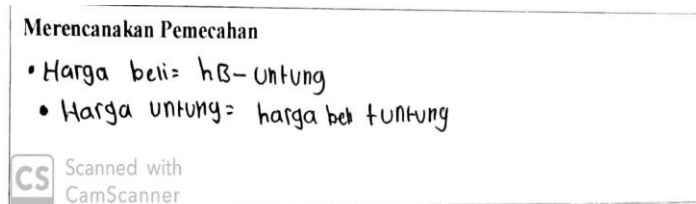 Merencanakan Pemecahan
• Harga beli = hB - Untung
• Harga untung = harga beli + untung
CS Scanned with
CamScanner